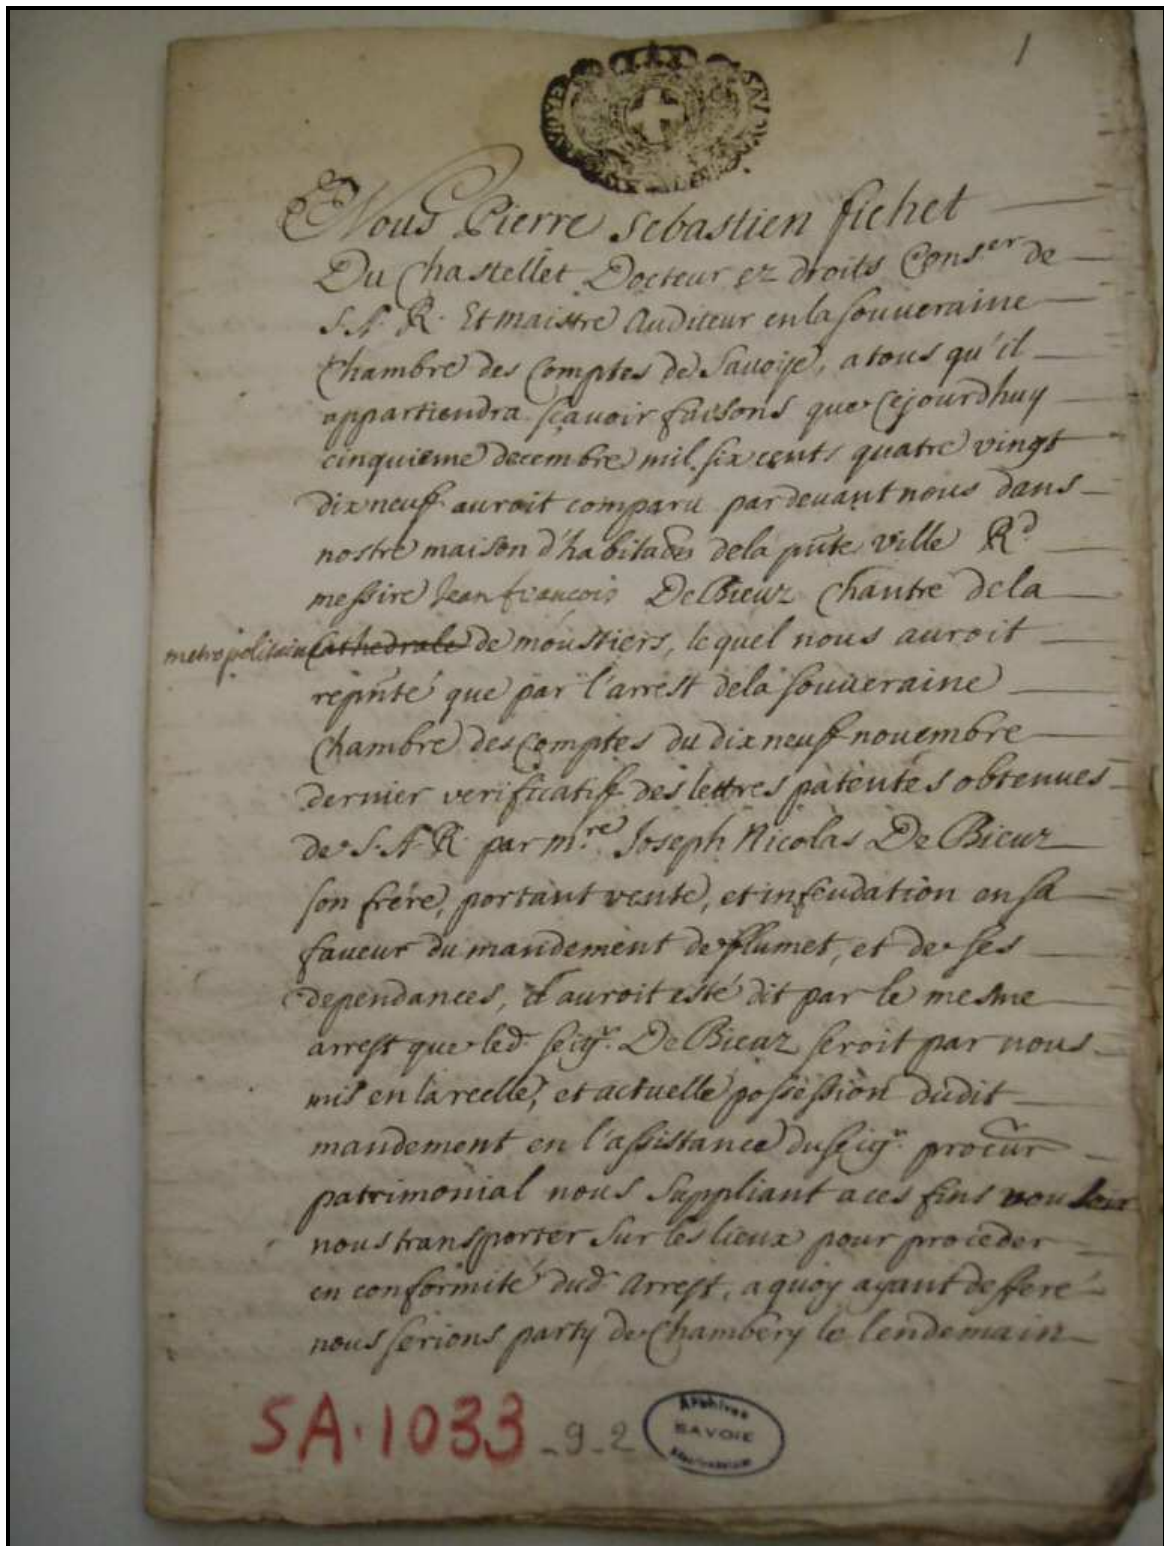 1
Nous Pierre Sebastien fichet
Du Chastellet Docteur ez droits Cons.er de
S. A. R. Et maistre Auditeur en la souueraine
Chambre des Comptes de Sauoye, a tous qu'il
appartiendra sçauoir faisons que Cejourdhuy
cinquieme decembre mil six cents quatre vingt
dix neuff auroit comparu pardeuant nous dans
nostre maison d'habitaōn dela pñte ville R.d
messire Jean francois De Bieux Chantre dela
metropolitaine Cathedrale de moustiers, lequel nous auroit
repñté que par l'arrest dela souueraine
Chambre des Comptes du dix neuff nouembre
dernier verificatiff des lettres patentes obtenues
de S. A. R. par m.re Joseph Nicolas De Bieux
son frére, portant vente, et infeudation en sa
faueur du mandement de flumet, et de ses
dependances, Il auroit esté dit par le mesme
arrest que led. seigr. De Bieux seroit par nous
mis en la reelle, et actuelle possession dudit
mandement en l'assistance du seigr. procur
patrimonial nous suppliant a ces fins vouloir
nous transporter sur les lieux pour proceder
en conformité dud. Arrest, a quoy ayant defferé
nous serions party de Chambery le lendemain
SA.1033 - 9 - 2
Archives
SAVOIE